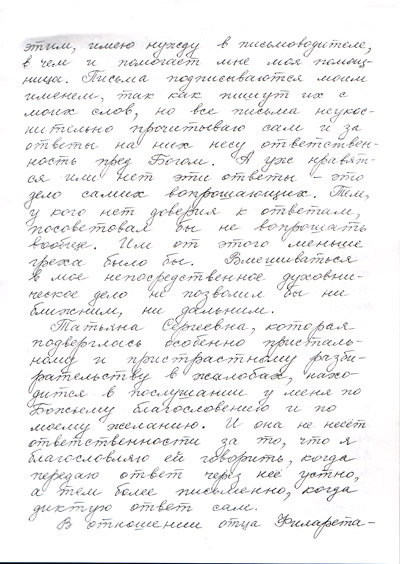 этим, имею нужду в письмоводителе,
в чем и помогает мне моя помощ-
ница. Письма подписываются моим
именем, так как пишут их с
моих слов, но все письма неукос-
нительно прочитываю сам и за
ответы на них несу ответствен-
ность пред Богом. А уж нравят-
ся им нет эти ответы - это
дело самих вопрошающих. Тем,
у кого нет доверия к ответам,
посоветовал бы не вопрошать
вообще. Им от этого меньше
греха было бы. Вмешиваться
в мое непосредственное духовни-
ческое дело не позволил бы ни
ближним, ни дальним.
Татьяна Сергеевна, которая
подверглась особенно присталь-
ному и пристрастному разби-
рательству в жалобах, нахо-
дится в послушании у меня по
Божьему благословению и по
моему желанию. И она не несёт
ответственности за то, что я
благословляю ей говорить, когда
передаю ответ через неё устно,
а тем более письменно, когда
диктую ответ сам.
В отношении отца Филарета-